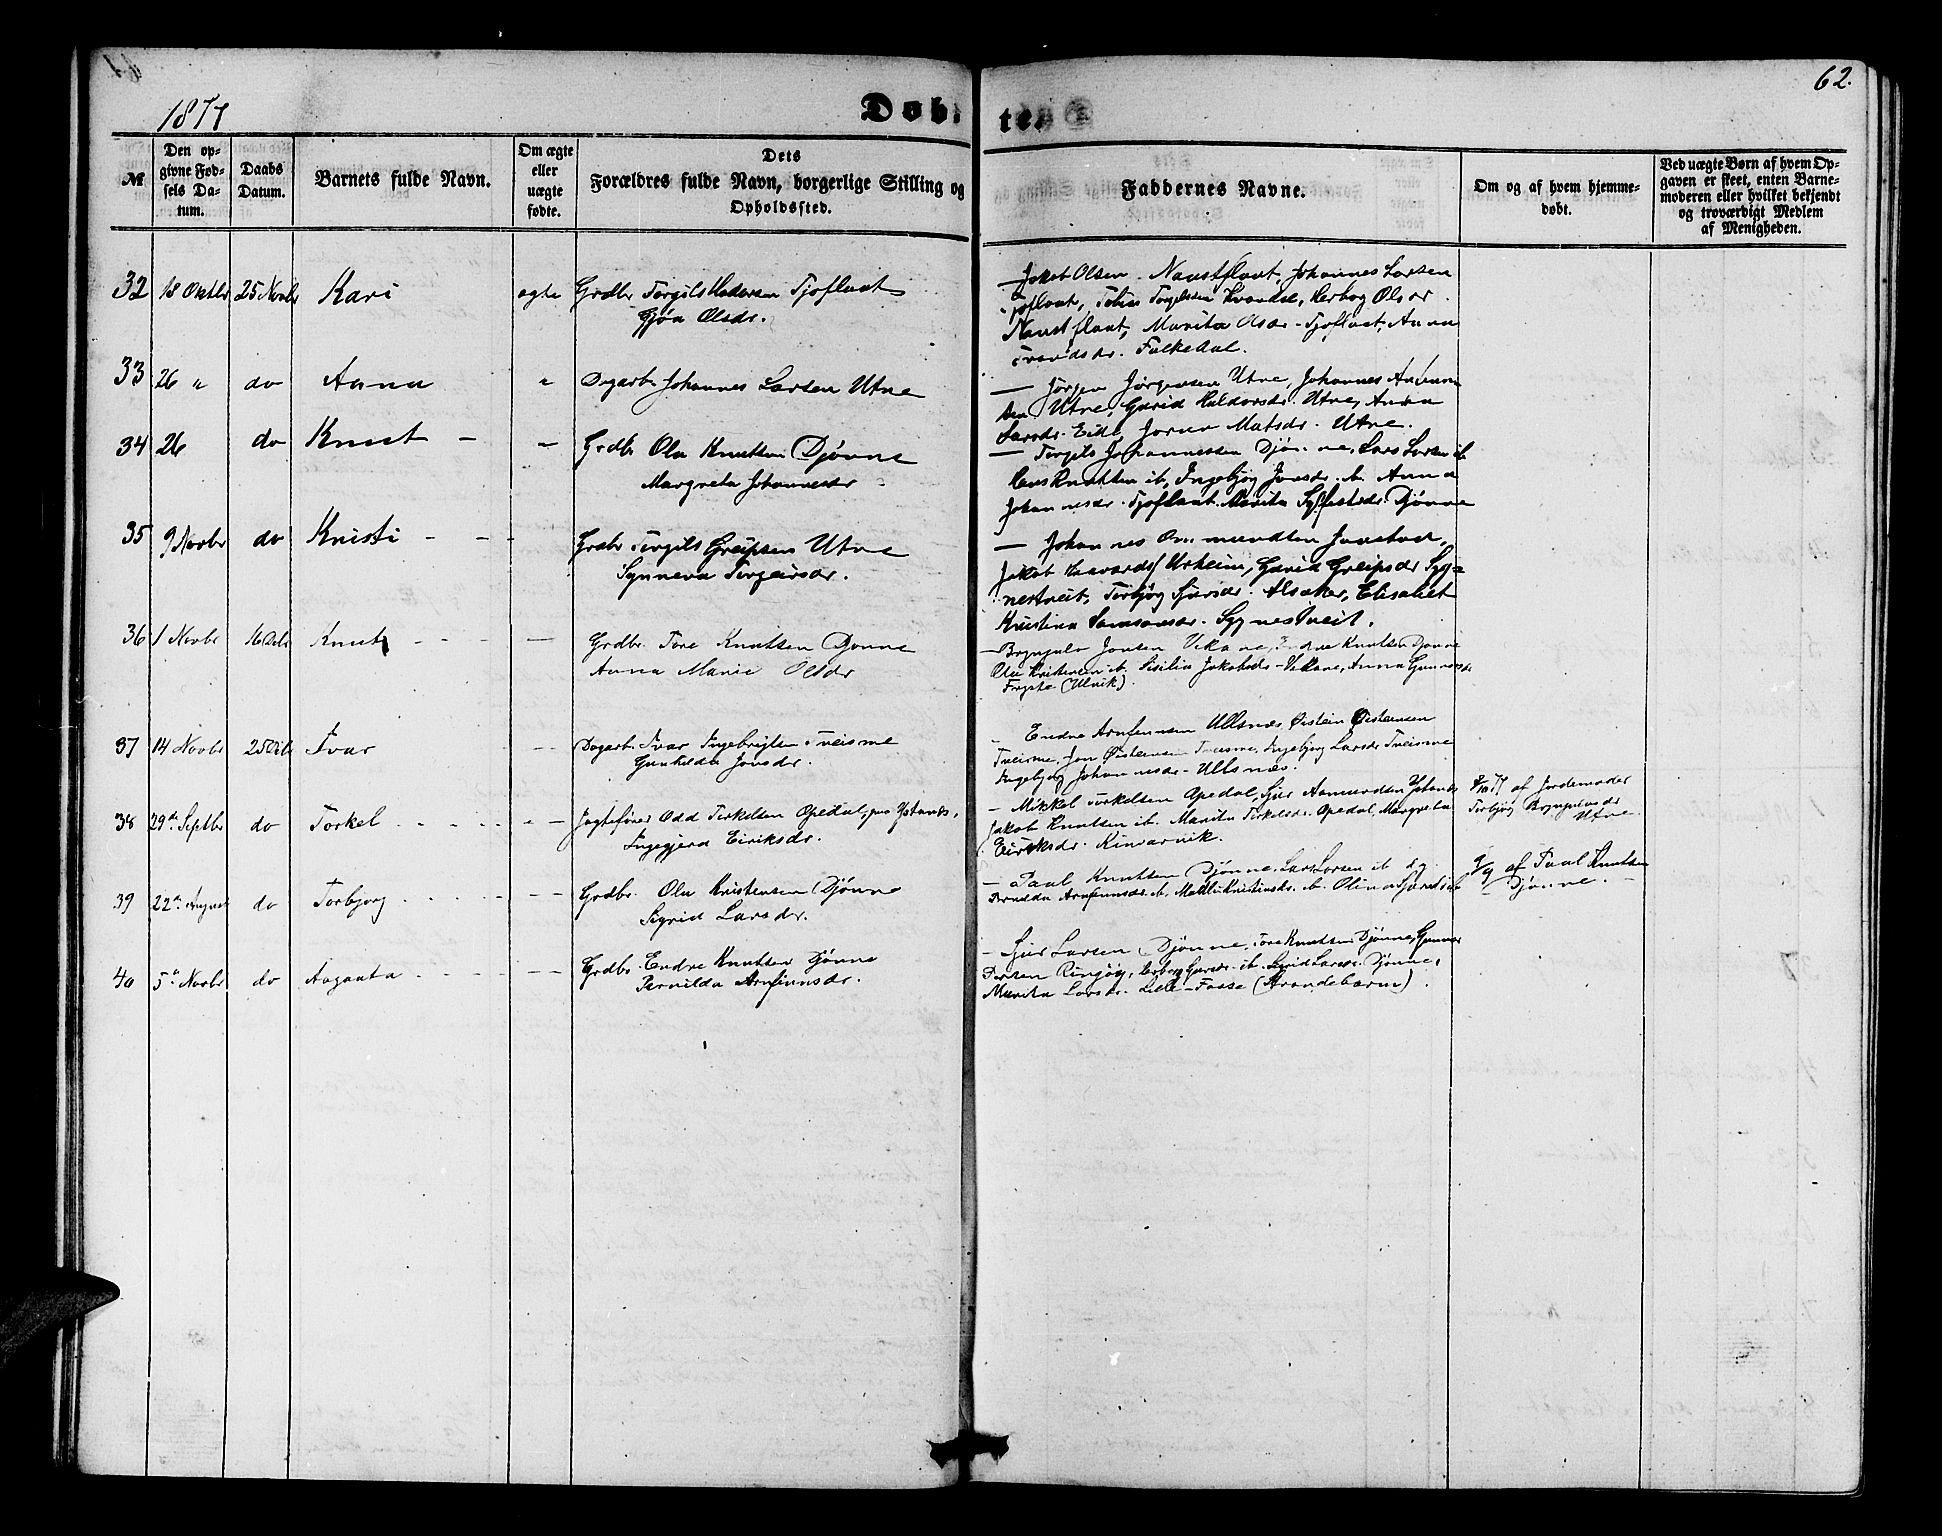 62.
1877
Døbte.
№
Den op-
givne Fød-
sels Da-
tum.
Daabs
Datum.
Barnets fulde Navn.
Om ægte
eller
uægte
fødte.
Dets
Forældres fulde Navn, borgerlige Stilling og
Opholdssted.
Faddernes Navne.
Om og af hvem hjemme-
døbt.
Ved uægte Børn af hvem Op-
gaven er skeet, enten Barne-
moderen eller hvilket bekjendt
og troværdigt Medlem
af Menigheden.
32 18 Oktbr 25 Novbr Kari ægte Grdbr Torgils Tjoflaat
Olsdr.
Jakob Olsen Naustflaat, Johannes Larsen
Tjoflaat, Torgilssen Herbog Olsdr
Naustflaat, Marita Olsdr - Tjoflaat, Anna
Falkedal.
33 26 " do Anna " Dagarb. Johannes Larsen Utne
— Jørgen Jørgensen Utne, Johannes
Utne, Gurid Haldorsdr. Utne, Anna
Larsdr. Matsdr. Utne.
34 26 do Knut - " Grdbr Ola Knutsen Djønne
Margreta Johannesdr
— Torgils Johannessen Djønne, Lars Larsen ib.
Knutsen ib, Ingebjøg Jonsdr. ib. Anna
Johannesdr. Tjoflaat. Marita Djønne
35 9 Novbr do Kristi - - - Grdbr Torgils Greipsen Utne
Synneva Torgeirsdr.
— Johannes
Jakob Urheim, Gurid Greipsdr Syg-
nestveit, Torbjøg Sjursdr. Alsaker, Elisabet
Kristina Samsonsdr. Sygnestveit.
36 1 Novbr 16 Knut - - - Grdbr. Tore Knutsen Djønne
Anna Marie Olsdr
— Brynjulv Jonsen Vikane, Knutsen Djønne
Ola Kristensen ib. Sisilia Jakobsdr - Vikane, Anna
(Ulvik).
37 14 Novbr 25 Ivar - - Dagarb. Ivar Ingebrigtsen Tveisme
Gunhilda Jonsdr.
- Endre Arnfinnsen Ullsnæs, Øistein Øisteinsen
Tveisme, Jon Øisteinsen Tveisme, Ingebjøg Larsdr Tveisme
Ingebjøg Johannesdr - Ullsnæs.
38 29de Septbr do Torkel - - - Jagtefører Odd Torkelsen Opedal, paa Ystanes,
Ingegjerd Eiriksdr.
- Mikkel Torkelsen Opedal, Sjur Aamundsen Ystanes
Jakob Knutsen ib. Marita Torkelsdr. Opedal, Margreta
Eiriksdr. Kinsarvik.
af Jordemoder
Torbjøg Brynjulvsdr
Utne
39 22de August do Torbjørg - - - Grdbr. Ola Kristensen Djønne
Sigrid Larsdr.
- Paal Knutsen Djønne, Lars Larsen ib
Pernilda Arnfinnsdr. ib. Kristensdr. ib. Olina ib
9/9 af Paal Knutsen
Djønne.
40 5te Novbr do Aagaata - - - Grdbr. Endre Knutsen Djønne
Pernilda Arnfinnsdr.
- Sjur Larsen Djønne, Tore Knutsen Djønne, Gunnar
Ringøy, ib. Sigrid Larsdr. Djønne,
Marita Larsdr. Lille-Fosse (Strandebarm).